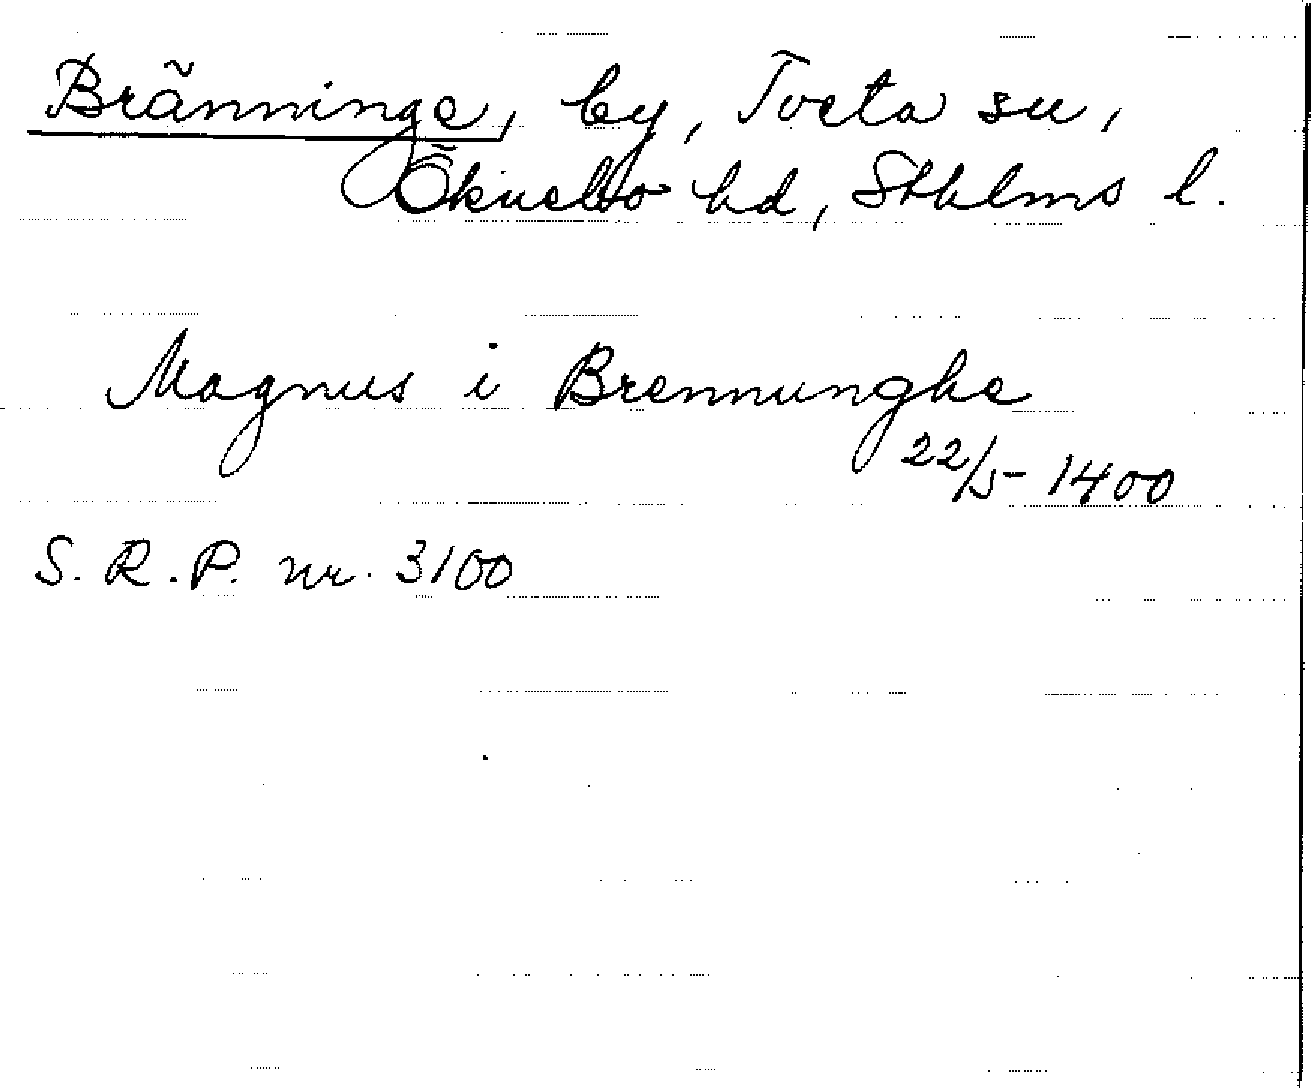 Bränninge, by, Tveta sn,
Öknebo hd, Sthlms l.
Magnus i Brennunghe
22/5 1400
S.R.P. nr. 3100